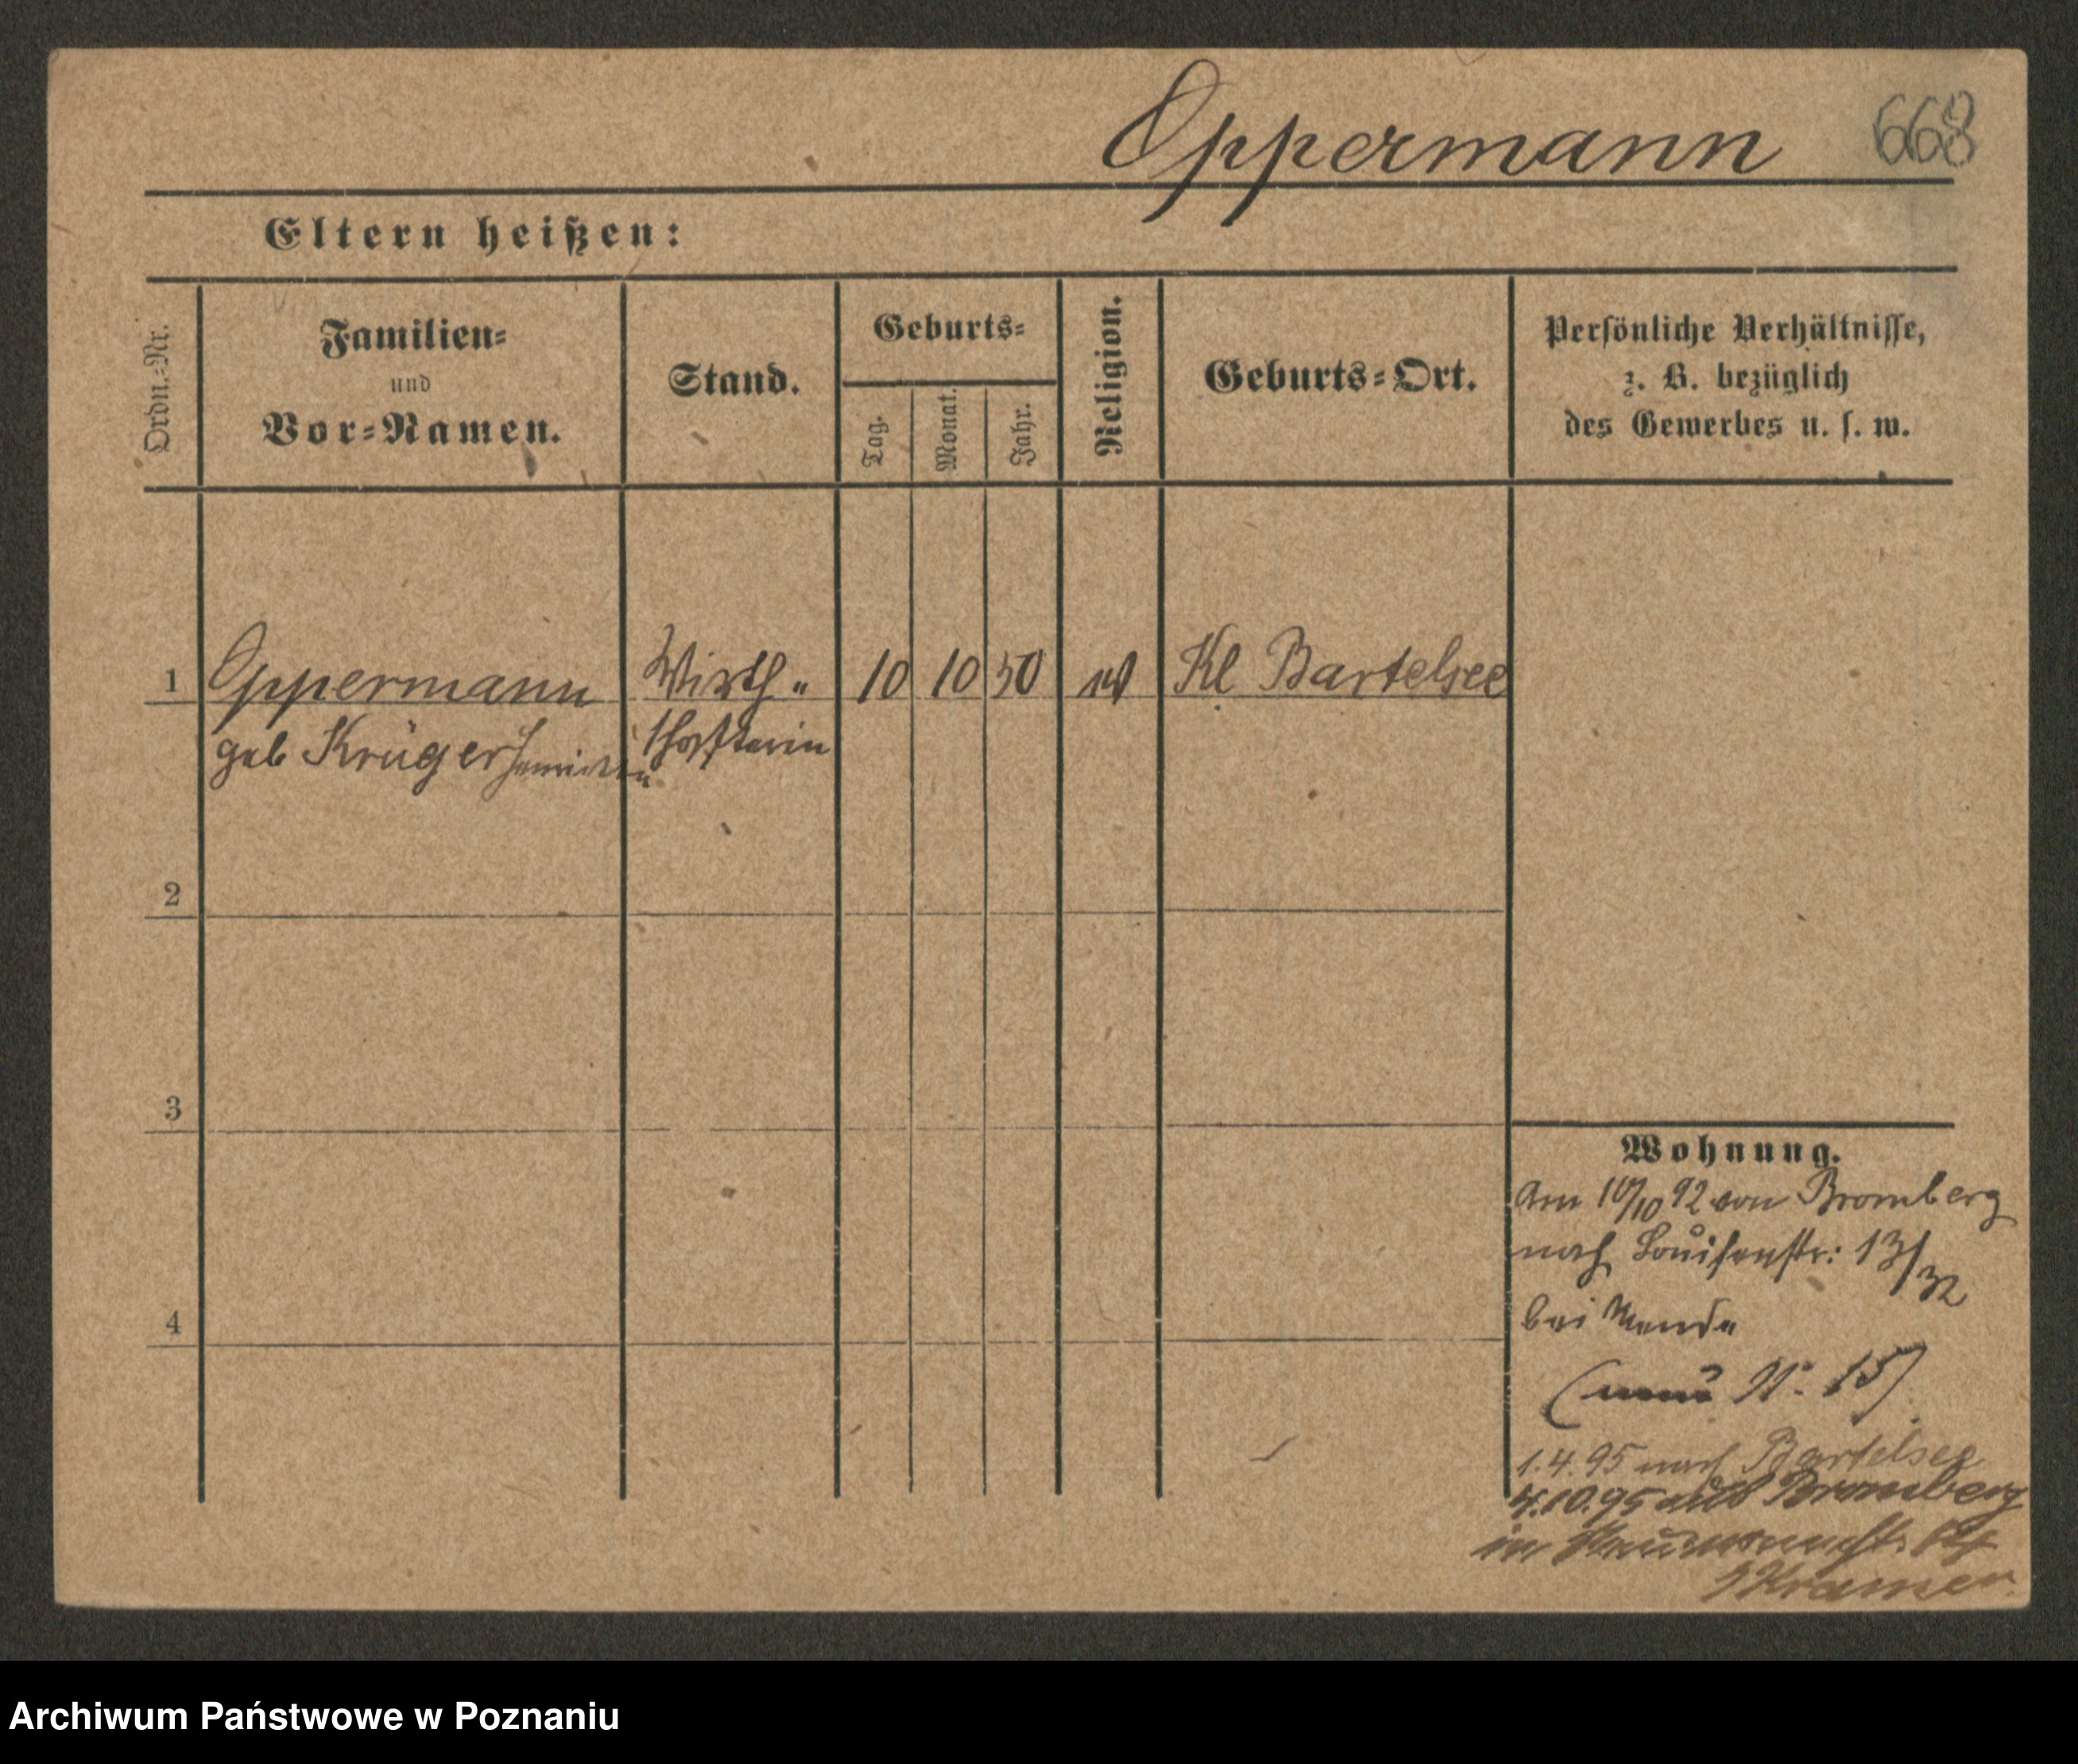 Oppermann 668
Eltern heißen:
Ordn.-Nr.
Familien-
und
Vor-Namen.
Stand.
Geburts-
Tag.
Monat.
Jahr.
Religion.
Geburts-Ort.
Persönliche Verhältnisse,
z. B. bezüglich
des Gewerbes u. s. w.
1 Oppermann Wirth„ 10 10 50 Kl Bartelsee
geb Krüger
2
3
4
Wohnung.
Am 10/10 92 von Bromberg
nach Louisenstr: 13/32
bei
Nr. 15)
1.4.95 nach Bartelsee
4.10.95 aus Bromberg
in 14
Kramer
Archiwum Państwowe w Poznaniu